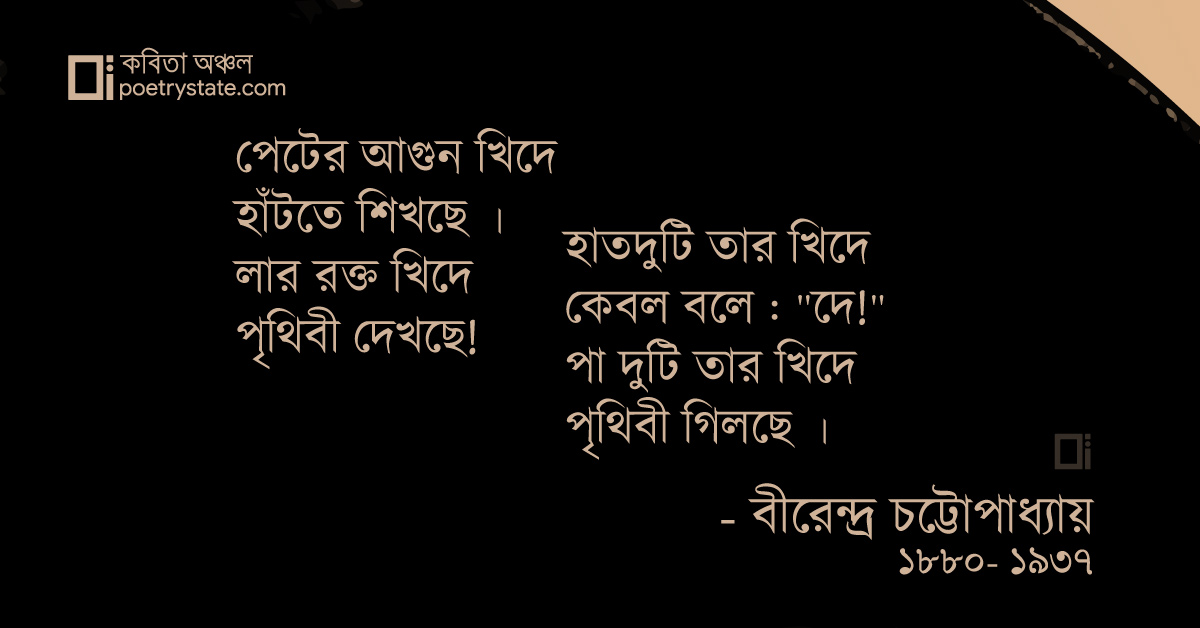 কবিতা অঞ্চল
poetrystate.com
পেটের আগুন খিদে
হাঁটতে শিখছে ।
লার রক্ত খিদে
পৃথিবী দেখছে!
হাতদুটি তার খিদে
কেবল বলে : "দে!"
পা দুটি তার খিদে
পৃথিবী গিলছে ।
- বীরেন্দ্র চট্টোপাধ্যায়
১৮৮০- ১৯৩৭